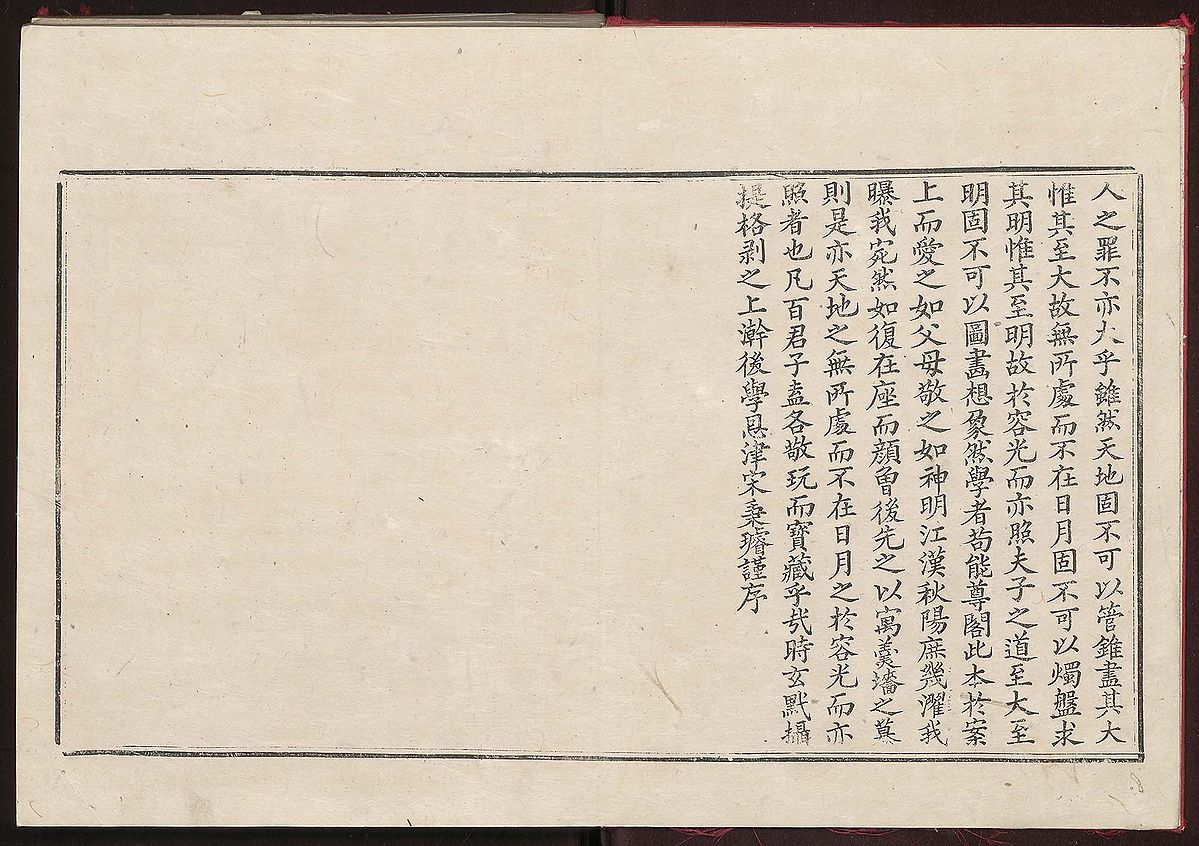 人之罪不亦大乎雖然天地固不可以管錐盡其大
惟其至大故無所處而不在日月固不可以燭盤求
其明惟其至明故於容光而亦照夫子之道至大至
明固不可以圖畵想象然學者苟能尊閣此本於案
上而愛之如父母敬之如神明江漢秋陽庶幾濯我
曝我宛然如復在座而顔曾後先之以寓羹墻之慕
則是亦天地之無所處而不在日月之於容光而亦
照者也凡百君子盍各敬玩而寶藏乎㢤時玄黓攝
提格剥之上澣後學恩津宋秉璿謹序
8